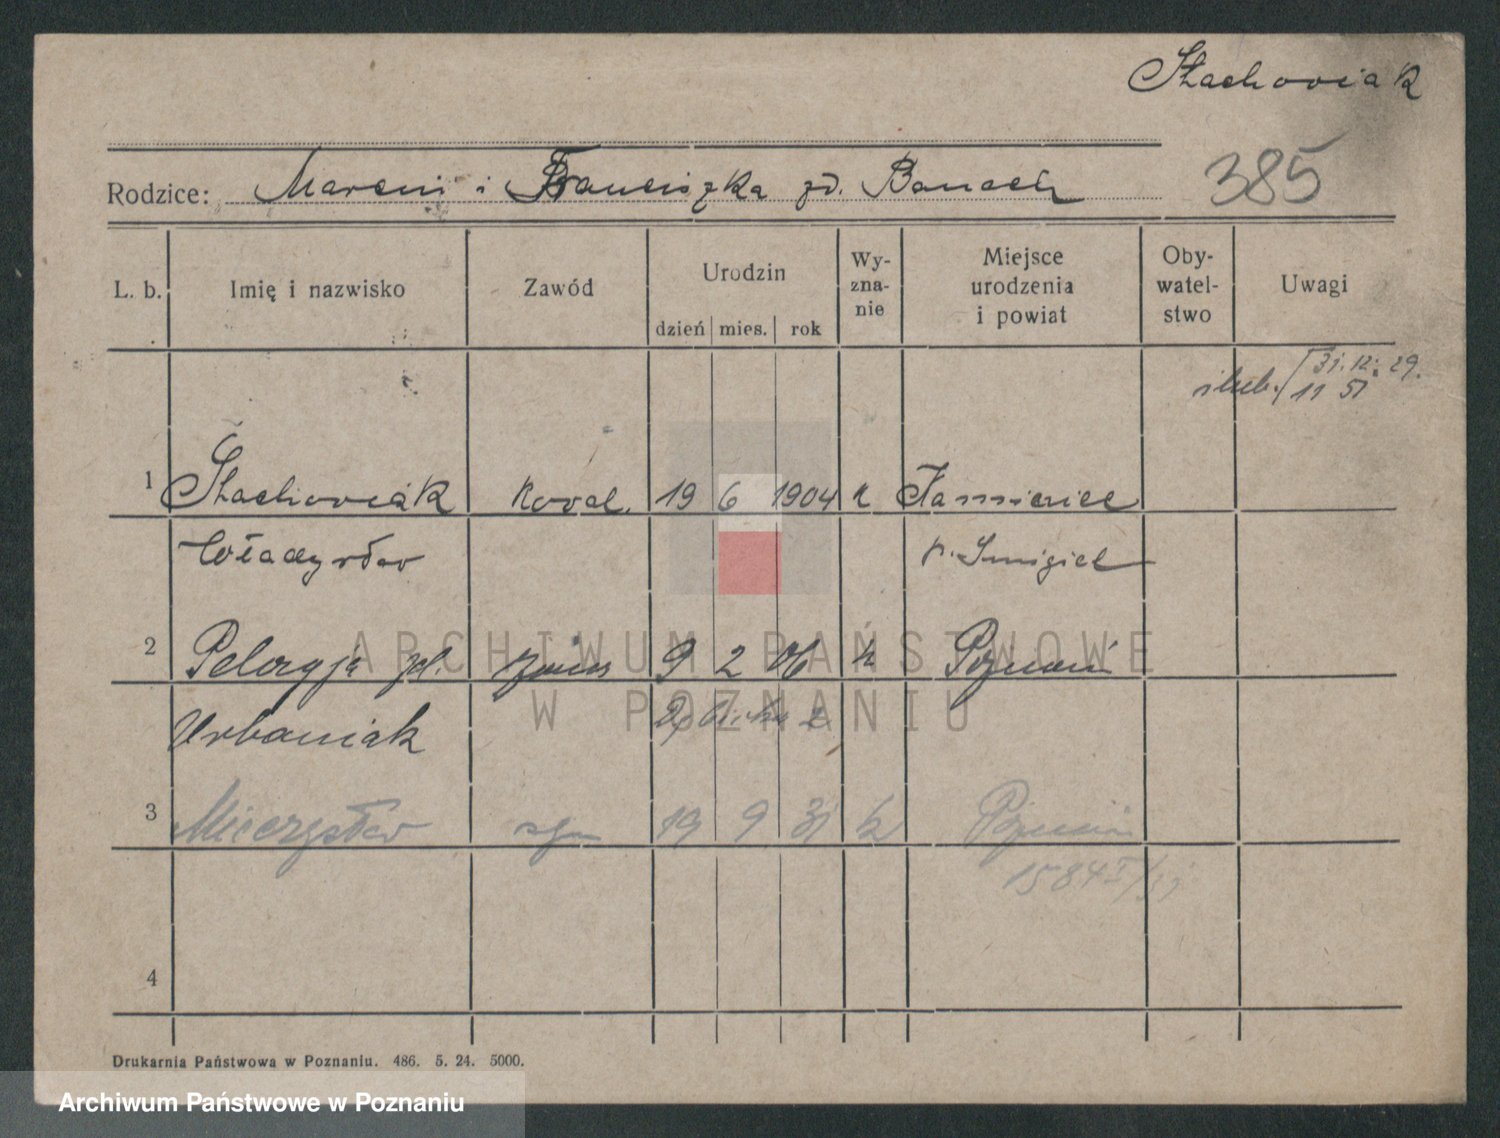 Stachowiak
385
Rodzice: Marcin i Franciszka zd. Banach
L. b. Imię i nazwisko Zawód Urodzin dzień mies. rok Wyznanie Miejsce urodzenia i powiat Obywatelstwo Uwagi
ślub. 31. 12. 29.
11 51
1 Stachowiak kowal. 19 6 1904 k Kamieniec
Władysław p. Śmigiel
2 Pelagja zd. 9 2 06 k Poznań
Urbaniak
3 Mieczysław syn 19 9 31 k Poznań
1584 I/31
4
Drukarnia Państwowa w Poznaniu. 486. 5. 24. 5000.
ARCHIWUM PAŃSTWOWE
W POZNANIU
Archiwum Państwowe w Poznaniu